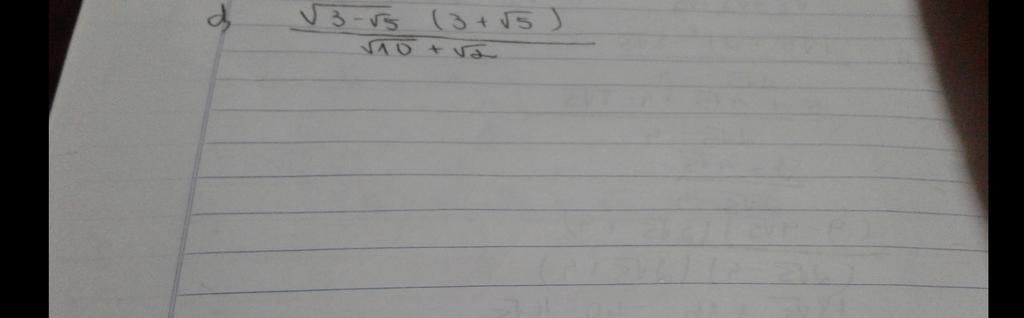 d) √(3-√5) (3+√5)
√10 + √2